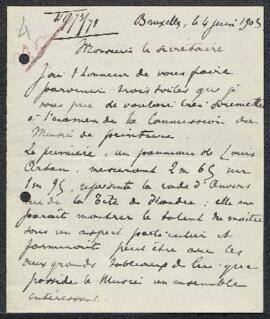 4
Bruxelles, le 4 juin 1905
Monsieur le Secrétaire
J'ai l'honneur de vous faire
parvenir trois toiles que je
vous prie de vouloir bien soumettre
à l'examen de la Commission du
Musée de peinture
La première, un panneau de Louis
Artan, mesurant 2 m 65 sur
1 m 95, représente la rade d'Anvers
vue de la Tête de Flandre; elle me
paraît montrer le talent du maître
sous un aspect particulier et
formerait peut être avec les
deux grands tableaux de lui que
possède le Musée un ensemble
intéressant.